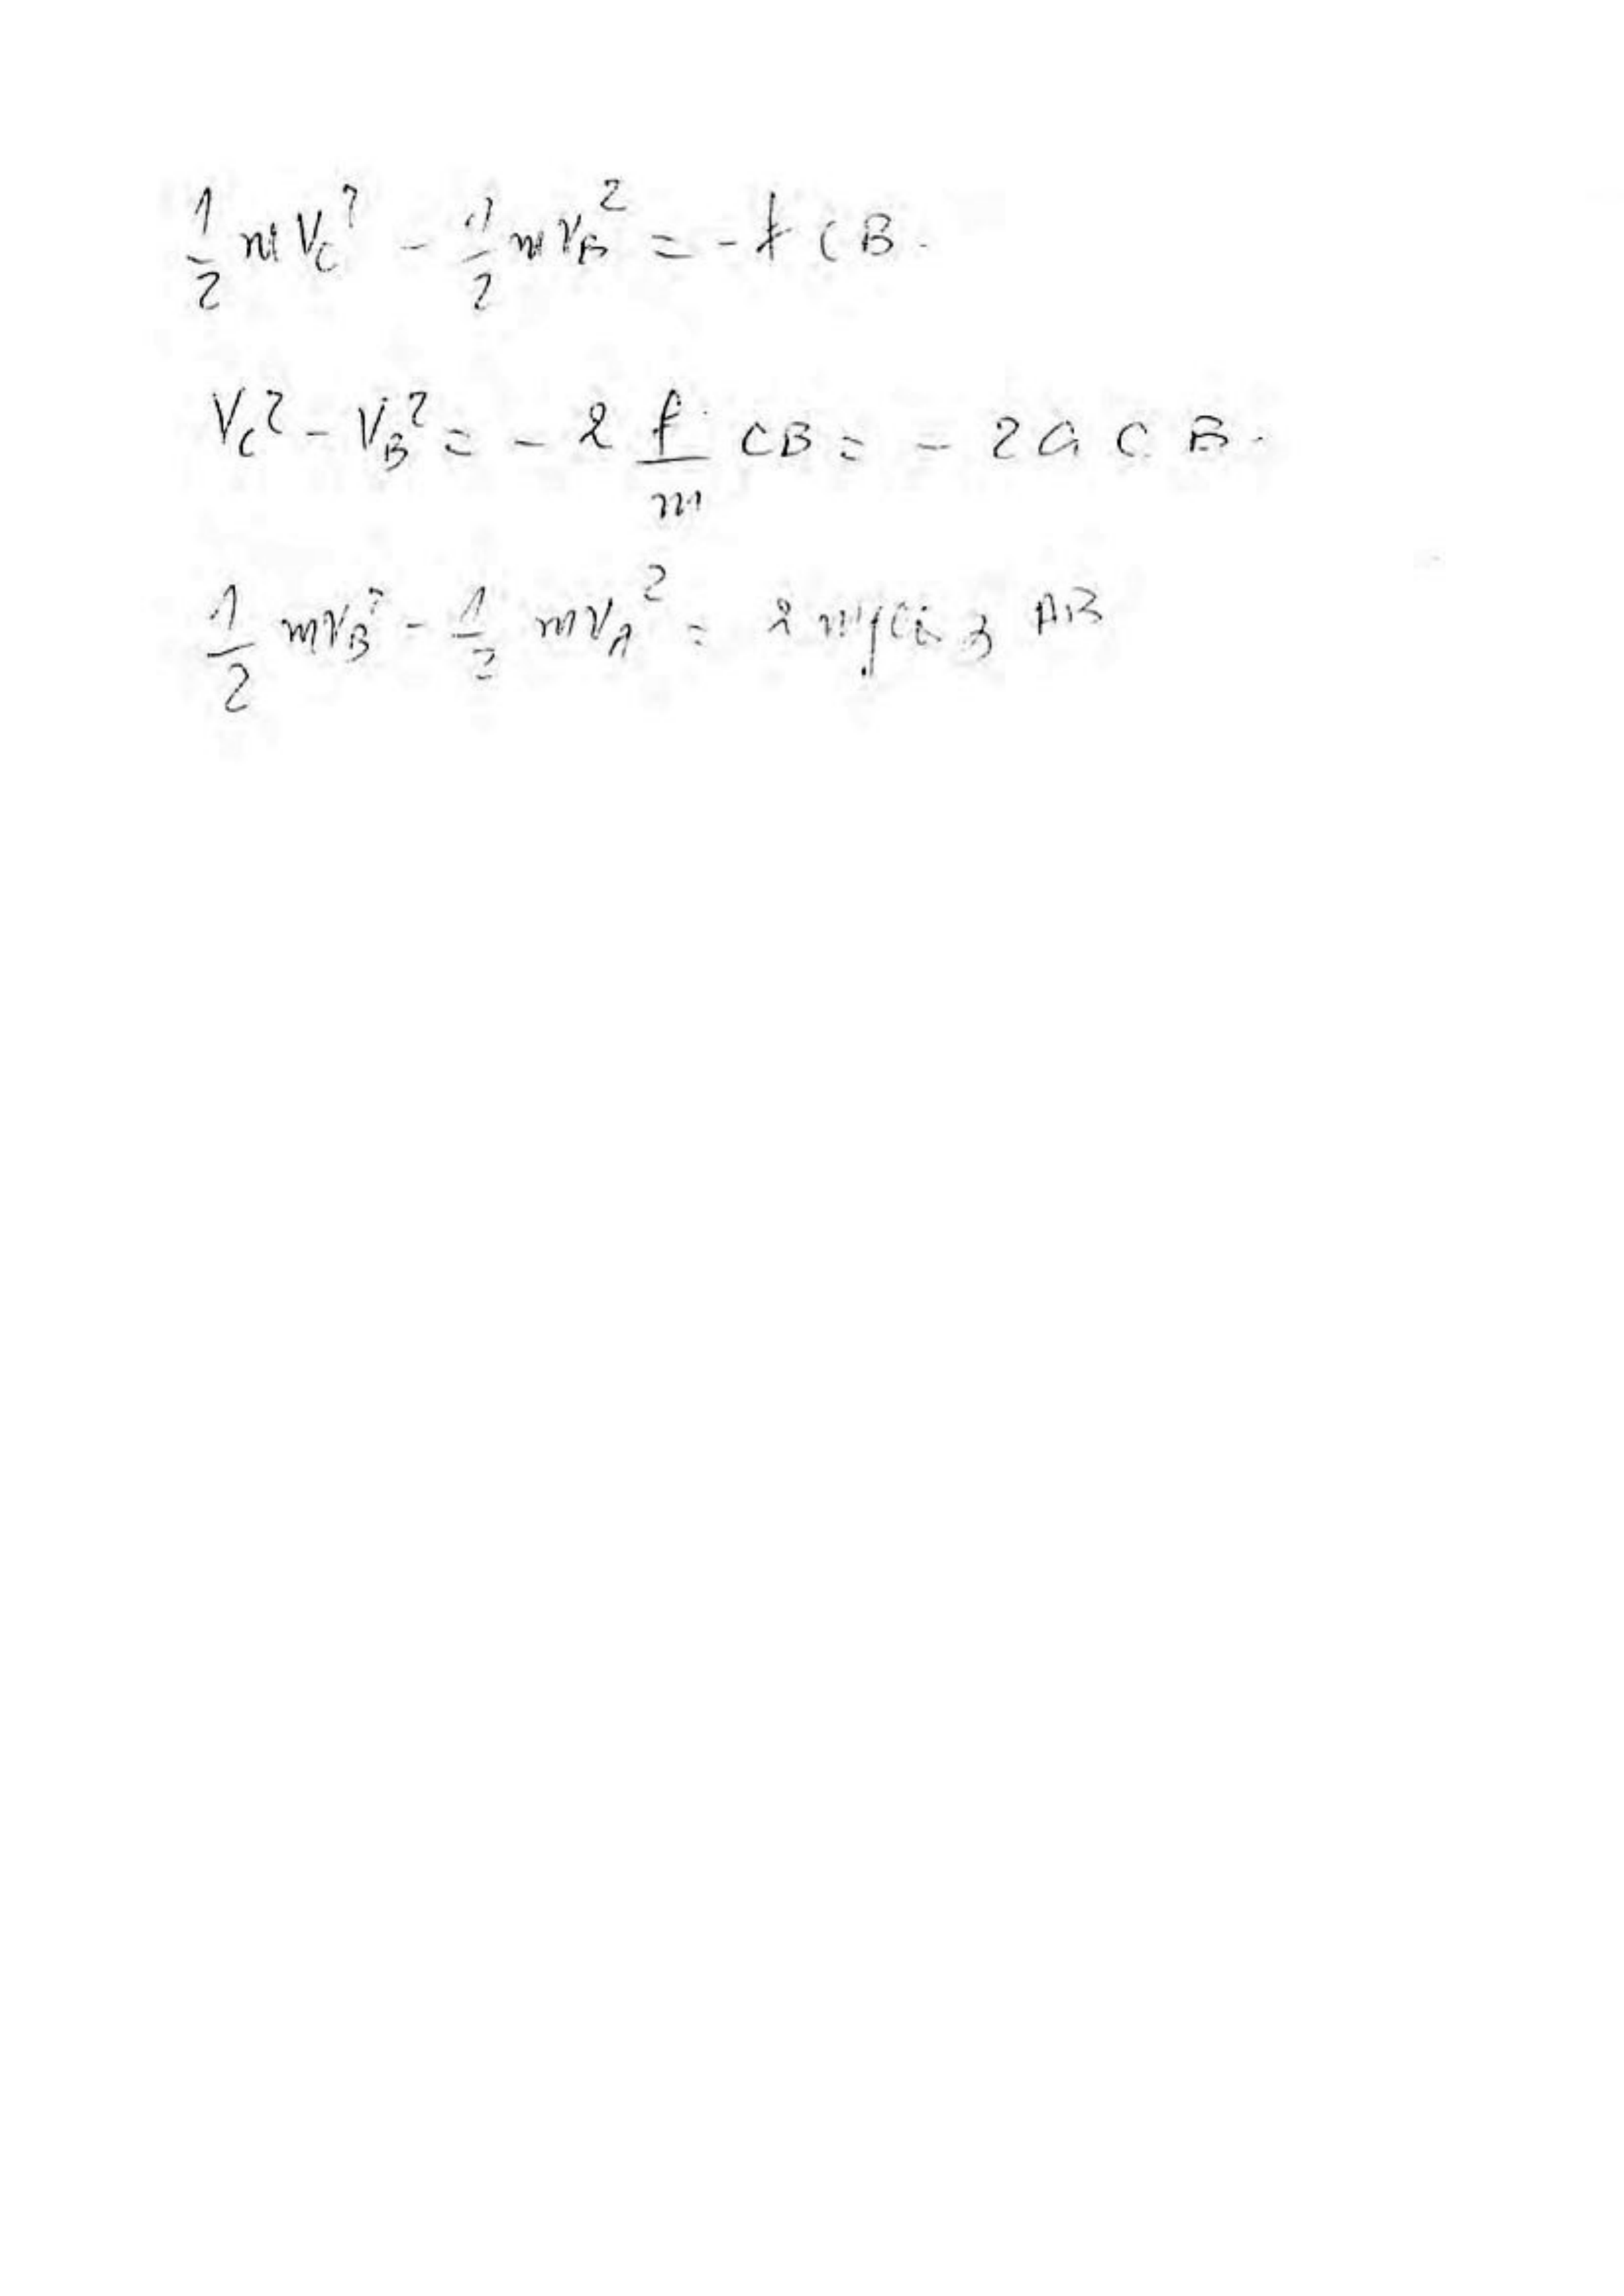 1/2 m V_C² - 1/2 m V_B² = - f CB.
V_C² - V_B² = - 2 f/m CB = - 2 a C B.
1/2 m V_B² - 1/2 m V_A² = 2 m g AB